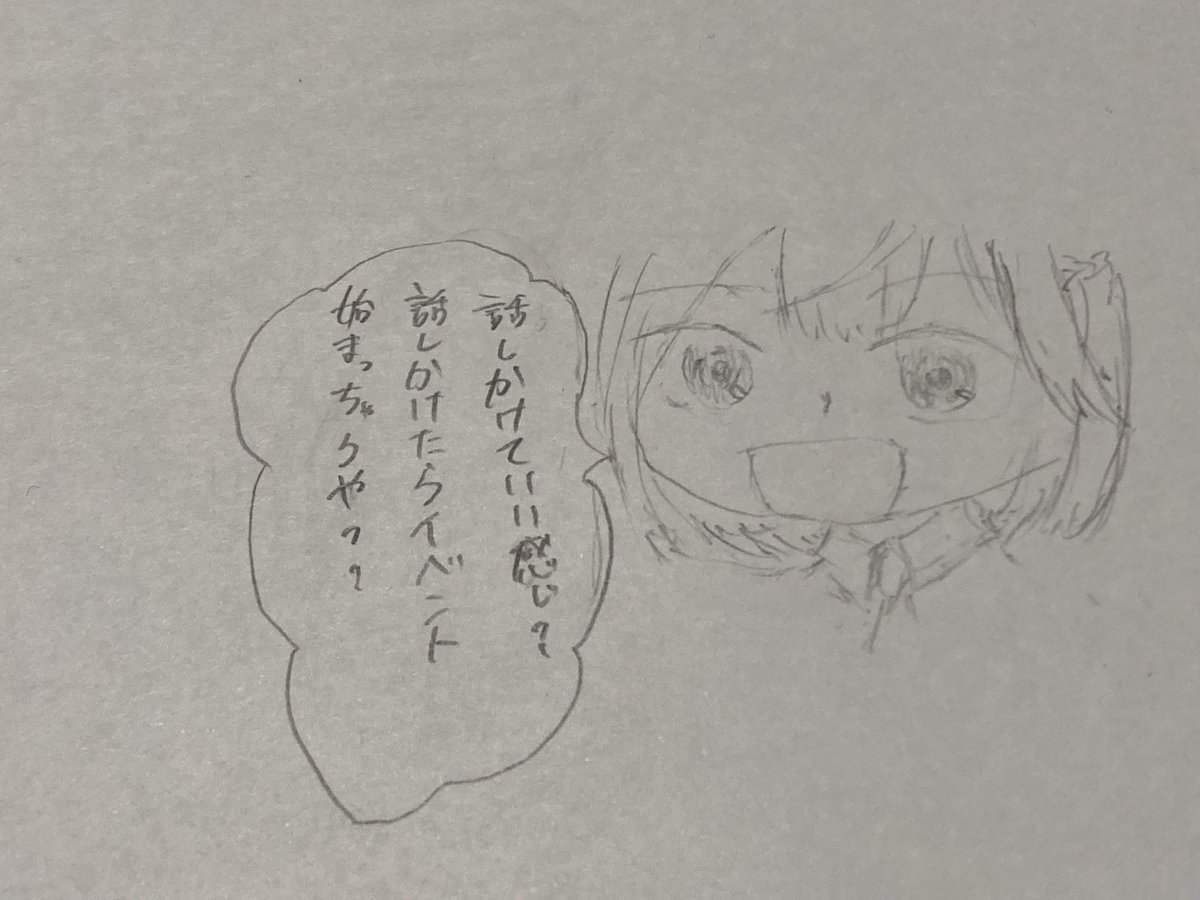 話しかけていい感じ?
話しかけたらイベント
始まっちゃうやつ?